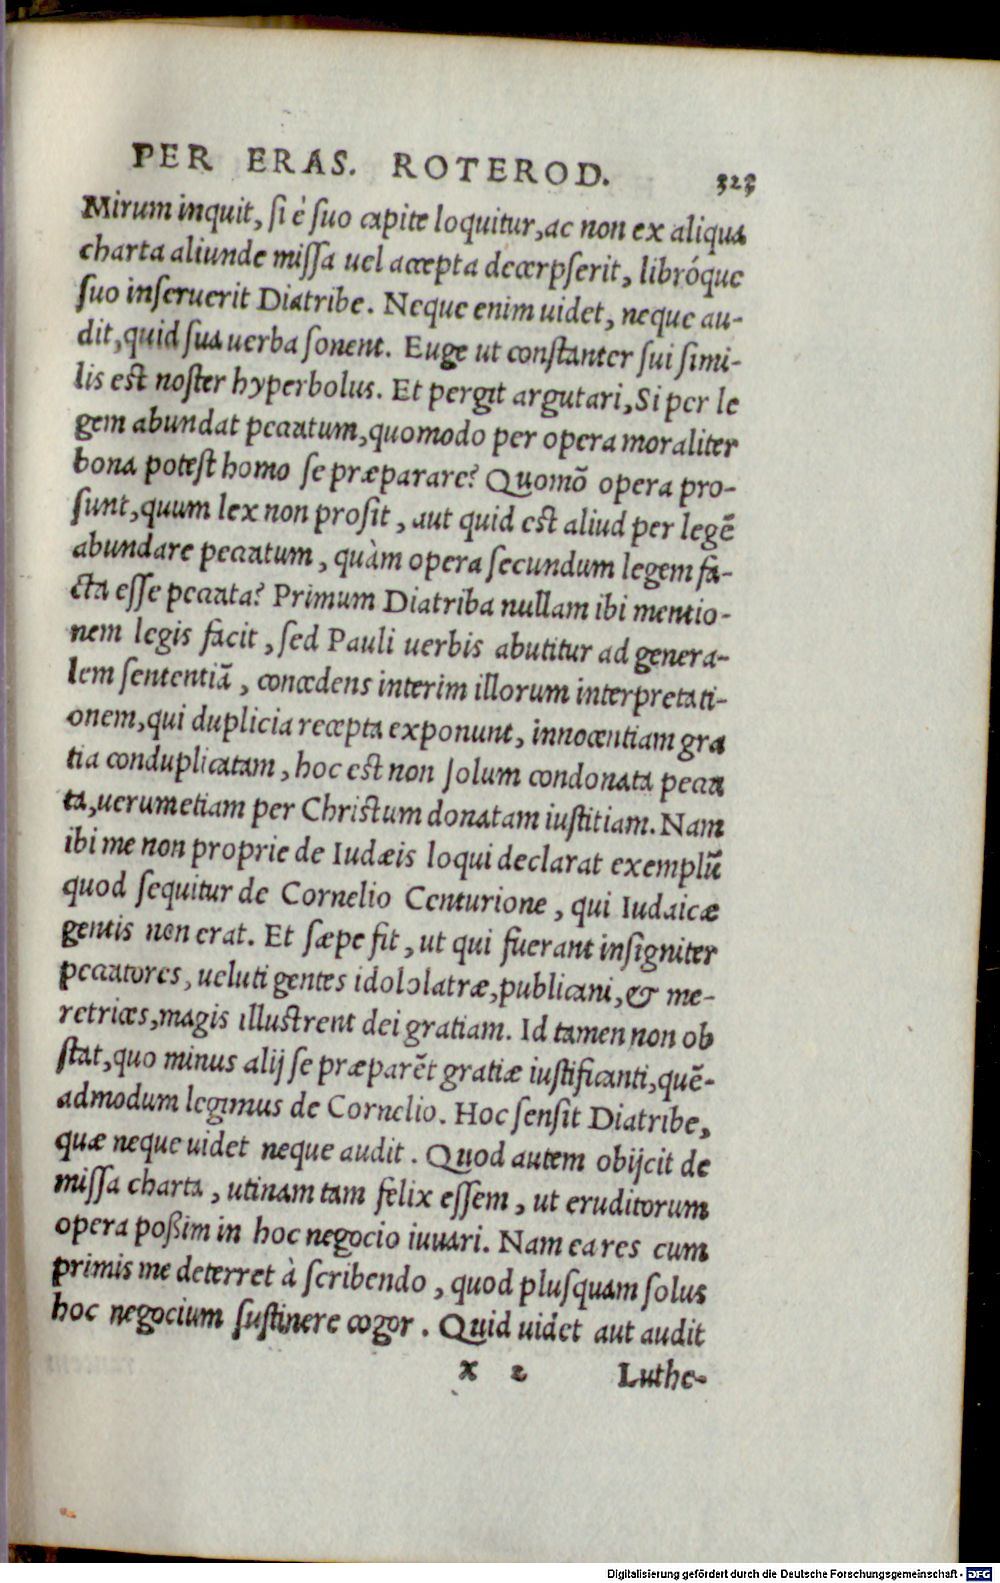 PER ERAS. ROTEROD. 323
Mirum inquit, si è suo capite loquitur, ac non ex aliqua
charta aliunde missa uel accepta decerpserit, libróque
suo inseruerit Diatribe. Neque enim uidet, neque au-
dit, quid sua uerba sonent. Euge ut constanter sui simi-
lis est noster hyperbolus. Et pergit argutari, Si per le
gem abundat peccatum, quomodo per opera moraliter
bona potest homo se præparare? Quomō opera pro-
sunt, quum lex non prosit, aut quid est aliud per legē
abundare peccatum, quàm opera secundum legem fa-
cta esse peccata? Primum Diatriba nullam ibi mentio-
nem legis facit, sed Pauli uerbis abutitur ad genera-
lem sententiā, concedens interim illorum interpretati-
onem, qui duplicia recepta exponunt, innocentiam gra
tia conduplicatam, hoc est non solum condonata pecca
ta, uerumetiam per Christum donatam iustitiam. Nam
ibi me non proprie de Iudæis loqui declarat exemplū
quod sequitur de Cornelio Centurione, qui Iudaicæ
gentis non erat. Et sæpe fit, ut qui fuerant insigniter
peccatores, ueluti gentes idololatræ, publicani, & me-
retrices, magis illustrent dei gratiam. Id tamen non ob
stat, quo minus alij se præparēt gratiæ iustificanti, quē-
admodum legimus de Cornelio. Hoc sensit Diatribe,
quæ neque uidet neque audit. Quod autem obijcit de
missa charta, utinam tam felix essem, ut eruditorum
opera poßim in hoc negocio iuuari. Nam ea res cum
primis me deterret à scribendo, quod plusquam solus
hoc negocium sustinere cogor. Quid uidet aut audit
x 2 Luthe-
Digitalisierung gefördert durch die Deutsche Forschungsgemeinschaft - DFG